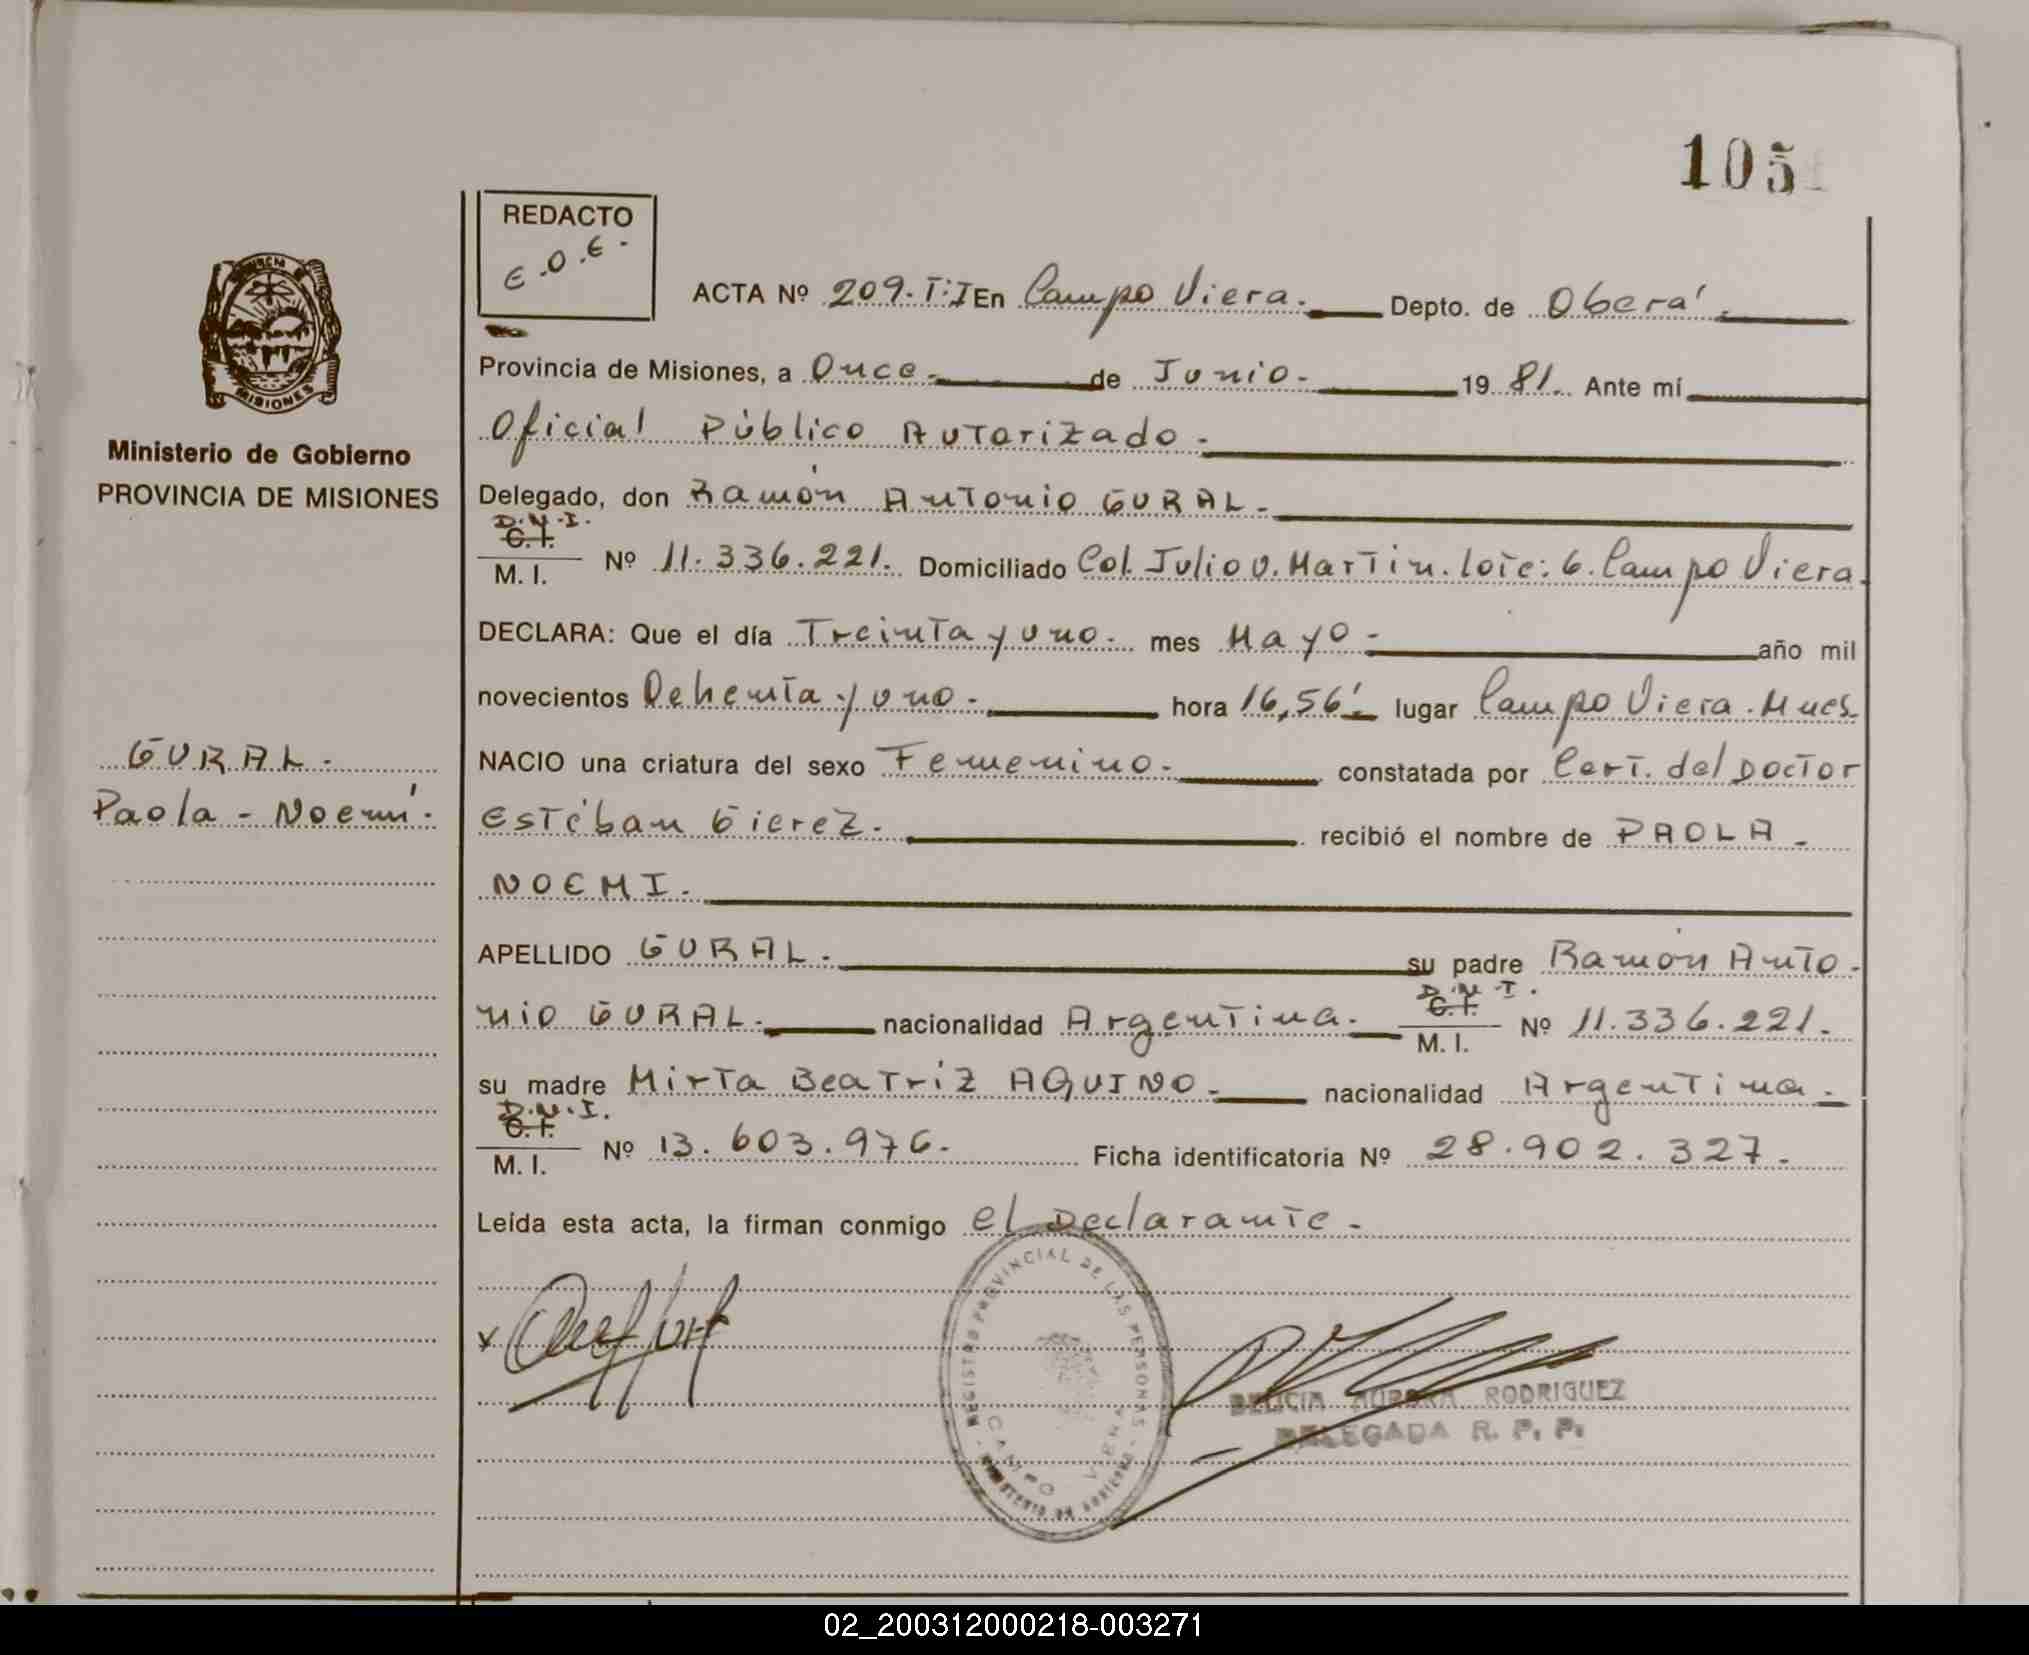 105
REDACTO
E.O.E.
ACTA Nº 209. T:I En Campo Viera. Depto. de Oberá
Provincia de Misiones, a Once. de Junio. 19 81. Ante mí
Oficial Público Autorizado.
Delegado, don Ramón Antonio GURAL.
D.N.I.
C.I.
M. I. Nº 11.336.221. Domiciliado Col. Julio U. Martin. lote: 6. Campo Viera.
DECLARA: Que el día Treinta y uno. mes Mayo. año mil
novecientos Ochenta y uno. hora 16,56'. lugar Campo Viera. Mnes.
NACIO una criatura del sexo Femenino. constatada por Cert. del Doctor
Estéban Gierez. recibió el nombre de PAOLA
NOEMI.
APELLIDO GURAL. su padre Ramón Anto
nio GURAL. nacionalidad Argentina.
D.N.I.
C.I.
M. I. Nº 11.336.221.
su madre Mirta Beatriz AQUINO. nacionalidad Argentina.
D.N.I.
C.I.
M. I. Nº 13.603.976. Ficha identificatoria Nº 28.902.327.
Leída esta acta, la firman conmigo el Declarante.
PROVINCIA DE
MISIONES
Ministerio de Gobierno
PROVINCIA DE MISIONES
GURAL.
Paola - Noemí.
REGISTRO PROVINCIAL DE LAS PERSONAS
CAMPO VIERA
MINISTERIO DE GOBIERNO
DELICIA AURORA RODRIGUEZ
DELEGADA R. P. P.
02_200312000218-003271